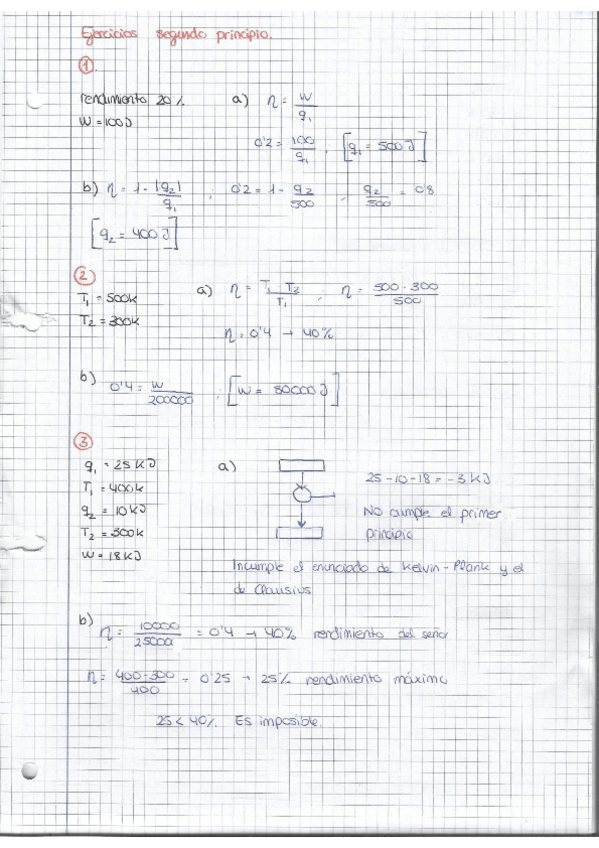 Ejercicios segundo principio.
①.
rendimiento 20%
W = 100J
a) η = W / q₁
0'2 = 100 / q₁ ; [q₁ = 500J]
b) η = 1 - |q₂| / q₁ ; 0'2 = 1 - q₂ / 500 ; q₂ / 500 = 0'8
[q₂ = 400J]
②
T₁ = 500k
T₂ = 300k
a) η = T₁ - T₂ / T₁ ; η = 500 - 300 / 500
η = 0'4 → 40%
b) 0'4 = W / 200000 ; [W = 80000J]
③
q₁ = 25 KJ
T₁ = 400k
q₂ = 10 KJ
T₂ = 300k
W = 18 KJ
a)
25 - 10 - 18 = - 3 KJ
No cumple el primer
principio
Incumple el enunciado de Kelvin - Plank y el
de Clausius
b) η = 10000 / 25000 = 0'4 → 40% rendimiento del señor
η = 400 - 300 / 400 = 0'25 → 25% rendimiento máximo
25 < 40%. Es imposible.